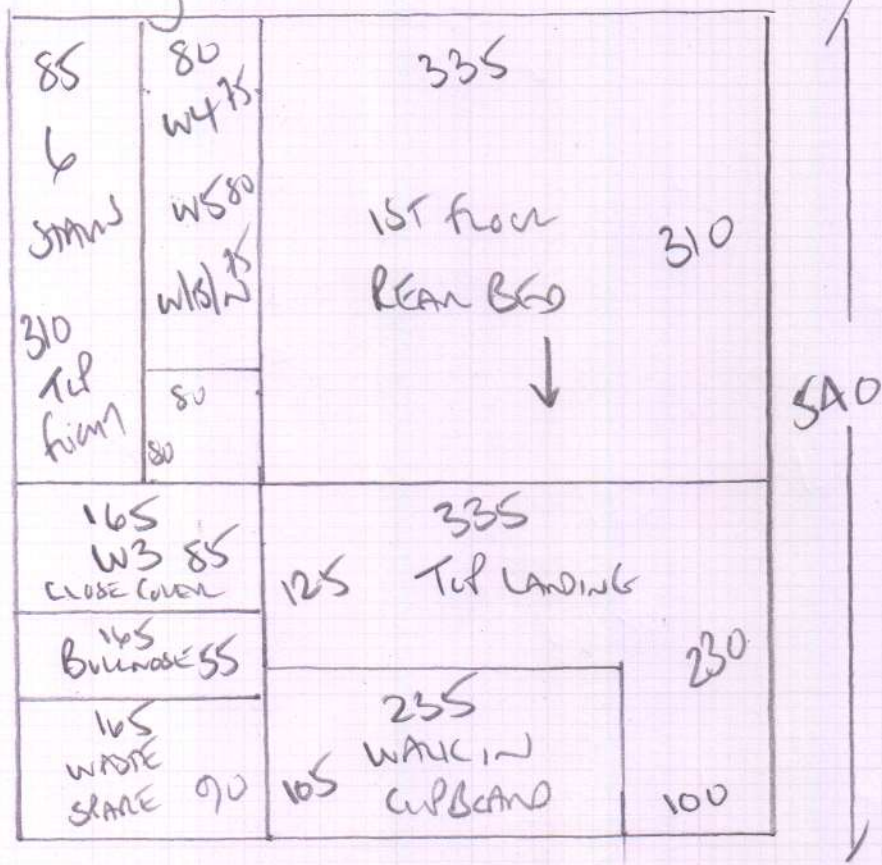 85
6
STAIRS
310
TOP
FLIGHT
80
W4 75
W5 80
W/S/N 75
80
80
335
1ST FLOOR
REAR BED
310
540
165
W3 85
CLOSE COVER
165
BULLNOSE 55
165
WASTE
SPARE 90
335
125 TOP LANDING
230
235
WALK IN
105 CUPBOARD
100